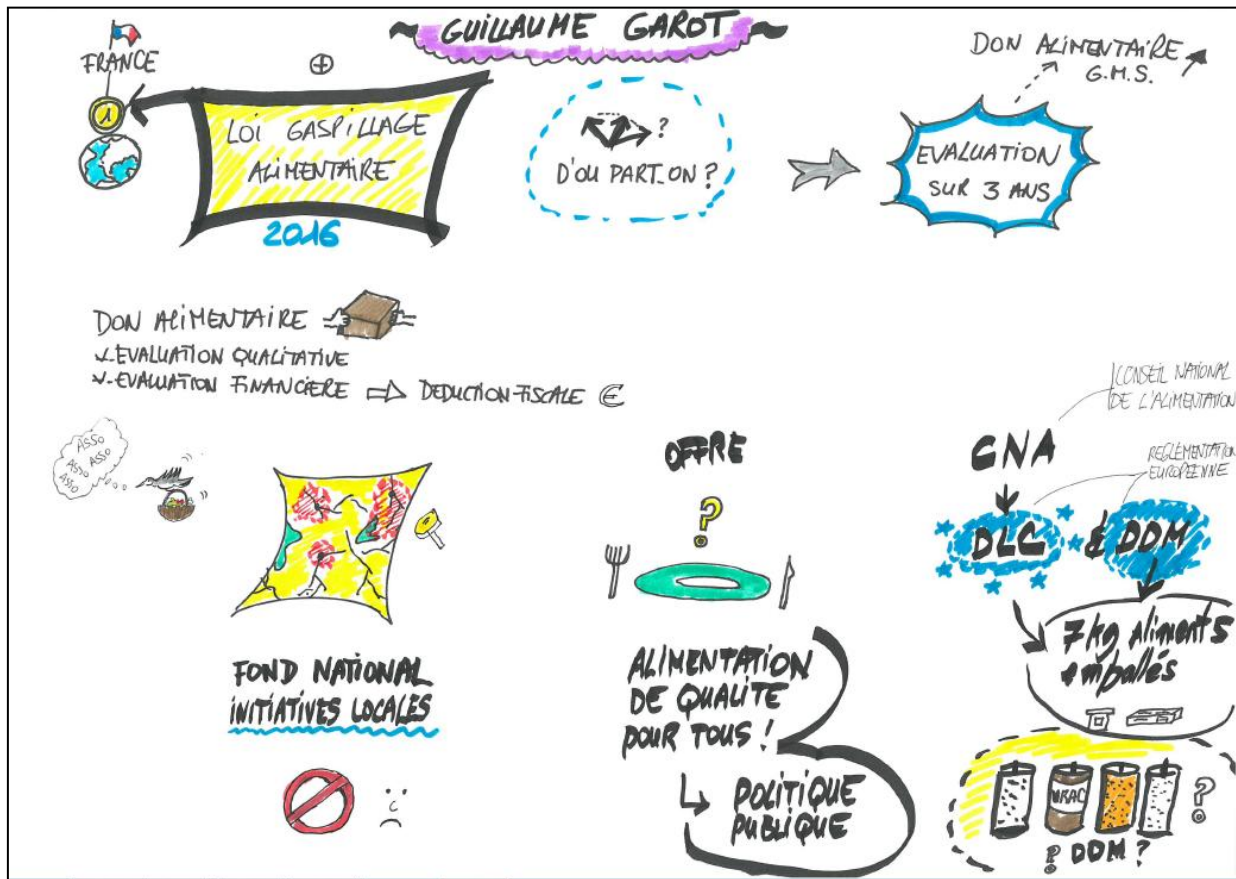 GUILLAUME GAROT
FRANCE
1
+
LOI GASPILLAGE
ALIMENTAIRE
2016
?
D'OU PART-ON ?
DON ALIMENTAIRE
G.M.S.
EVALUATION
SUR 3 ANS
DON ALIMENTAIRE
EVALUATION QUALITATIVE
EVALUATION FINANCIERE ⇨ DEDUCTION FISCALE €
ASSO
ASSO ASSO
ASSO
FOND NATIONAL
INITIATIVES LOCALES
OFFRE
?
ALIMENTATION
DE QUALITE
POUR TOUS !
POLITIQUE
PUBLIQUE
CONSEIL NATIONAL
DE L'ALIMENTATION
CNA
REGLEMENTATION
EUROPEENNE
DLC & DDM
7 kg aliments
emballés
VRAC
?
? DDM ?